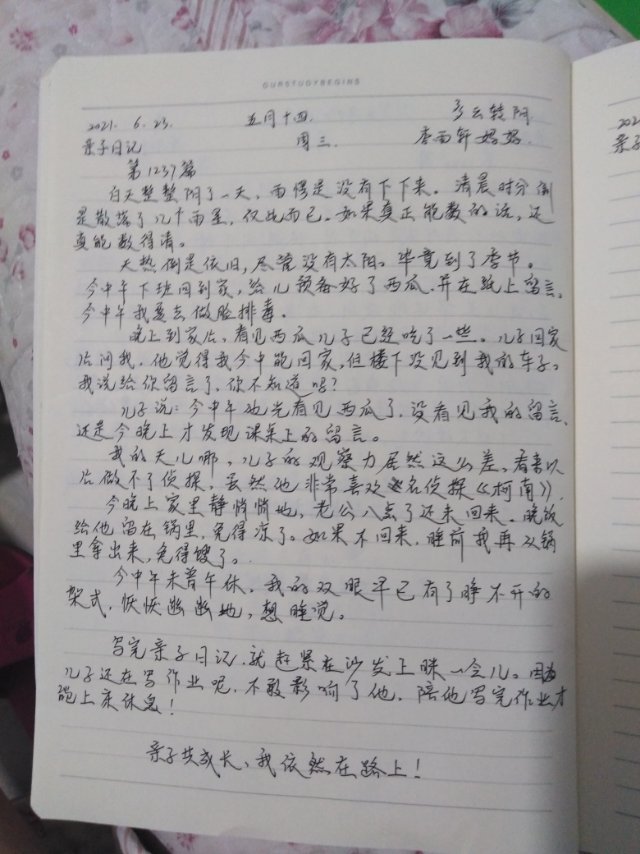 OURSTUDYBEGINS
2021. 6. 23. 五月十四. 多云转阴
亲子日记 周三. 李雨轩妈妈.
第1237篇
白天整整阴了一天，雨愣是没有下下来。清晨时分倒
是散落了几个雨星，仅此而已。如果真正能数的话，还
真能数得清。
天热倒是依旧，尽管没有太阳。毕竟到了季节。
今中午下班回到家，给儿预备好了西瓜，并在纸上留言。
今中午我要去做脸排毒。
晚上到家后，看见西瓜儿子已经吃了一些。儿子回家
后问我，他觉得我今中能回家，但楼下没见到我的车子。
我说给你留言了，你不知道吗？
儿子说：今中午他光看见西瓜了，没看见我的留言、
还是今晚上才发现课桌上的留言。
我的天儿哪，儿子的观察力居然这么差，看来以
后做不了侦探，虽然他非常喜欢名侦探《柯南》，
今晚上家里静悄悄地，老公八点了还未回来。晚饭
给他留在锅里，免得凉了。如果不回来，睡前我再从锅
里拿出来，免得馊了。
今中午未曾午休，我的双眼早已有了睁不开的
架式，恹恹幽幽地，想睡觉。
写完亲子日记，就赶紧在沙发上眯一会儿。因为
儿子还在写作业呢，不敢影响了他，陪他写完作业，才
能上床休息！
亲子共成长，我依然在路上！
202
亲子